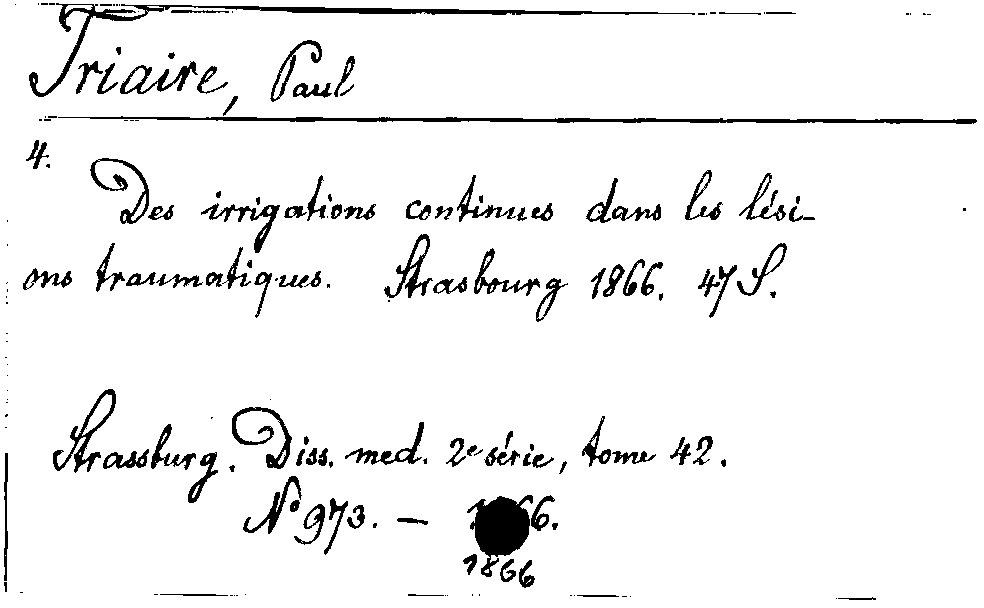 Triaire, Paul
4.
Des irrigations continues dans les lési-
ons traumatiques. Strasbourg 1866. 47 S.
Strassburg. Diss. med. 2e série, tome 42.
No 973. — 1866.
1866